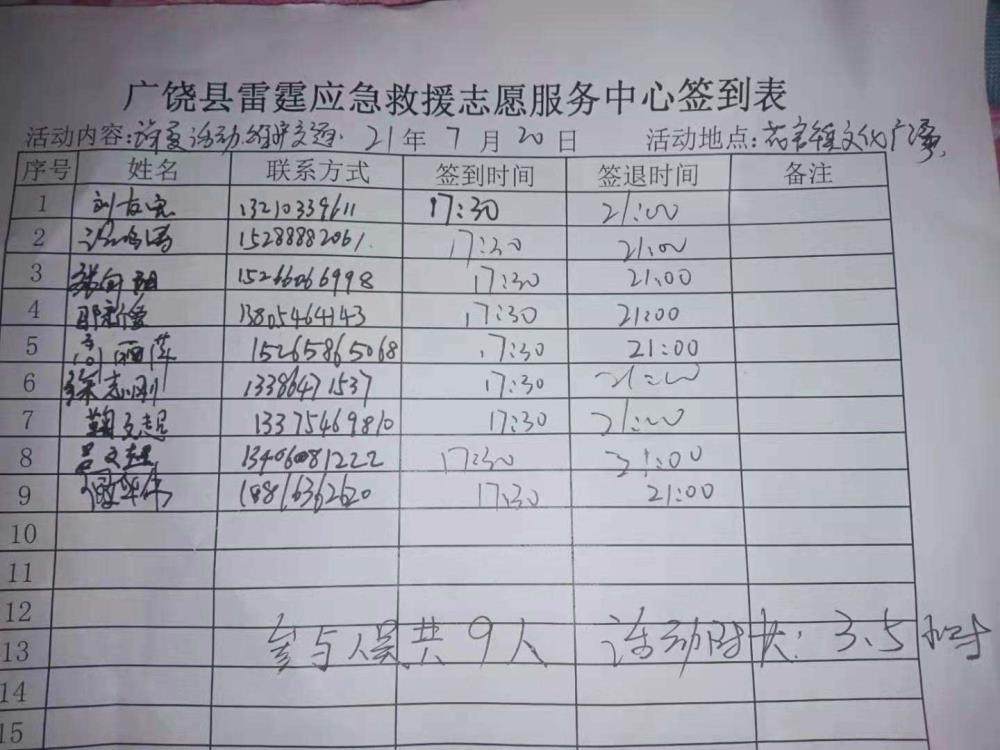 广饶县雷霆应急救援志愿服务中心签到表
活动内容:消夏活动.维护交通. 21年 7月 20日 活动地点:花官镇文化广场
序号 姓名 联系方式 签到时间 签退时间 备注
1 13210339611 17:30 21:00
2 15288882061. 17:30 21:00
3 15266066998 17:30 21:00
4 13805464143 17:30 21:00
5 高丽萍 15265865068 17:30 21:00
6 徐志刚 13386471537 17:30 21:00
7 13375469810 17:30 21:00
8 吕文超 13406081222 17:30 21:00
9 18816362620 17:30 21:00
10
11
12
13 参与人员共9人 活动时长:3.5小时
14
15